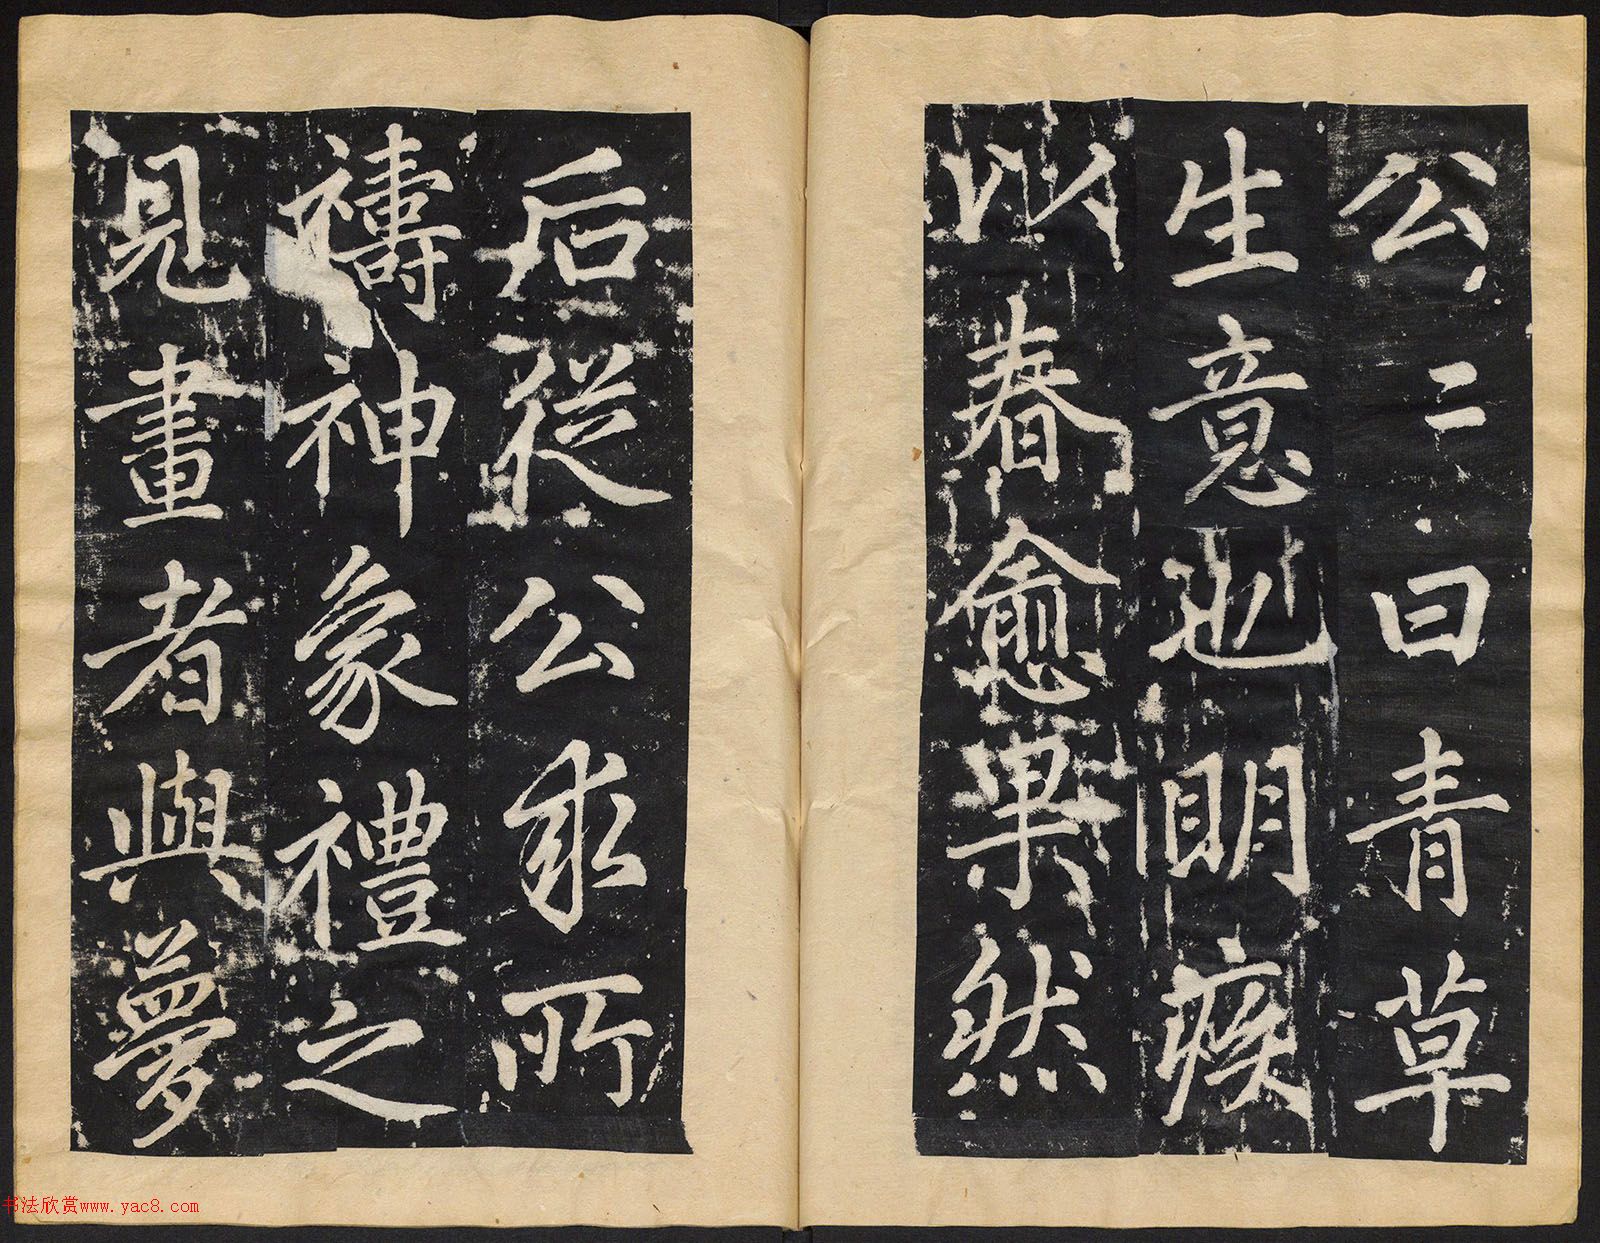 公〻曰青草
生意也朙疾
以春愈果然
后從公求所
禱神象禮之
見畫者與夢
书法欣赏www.yac8.com